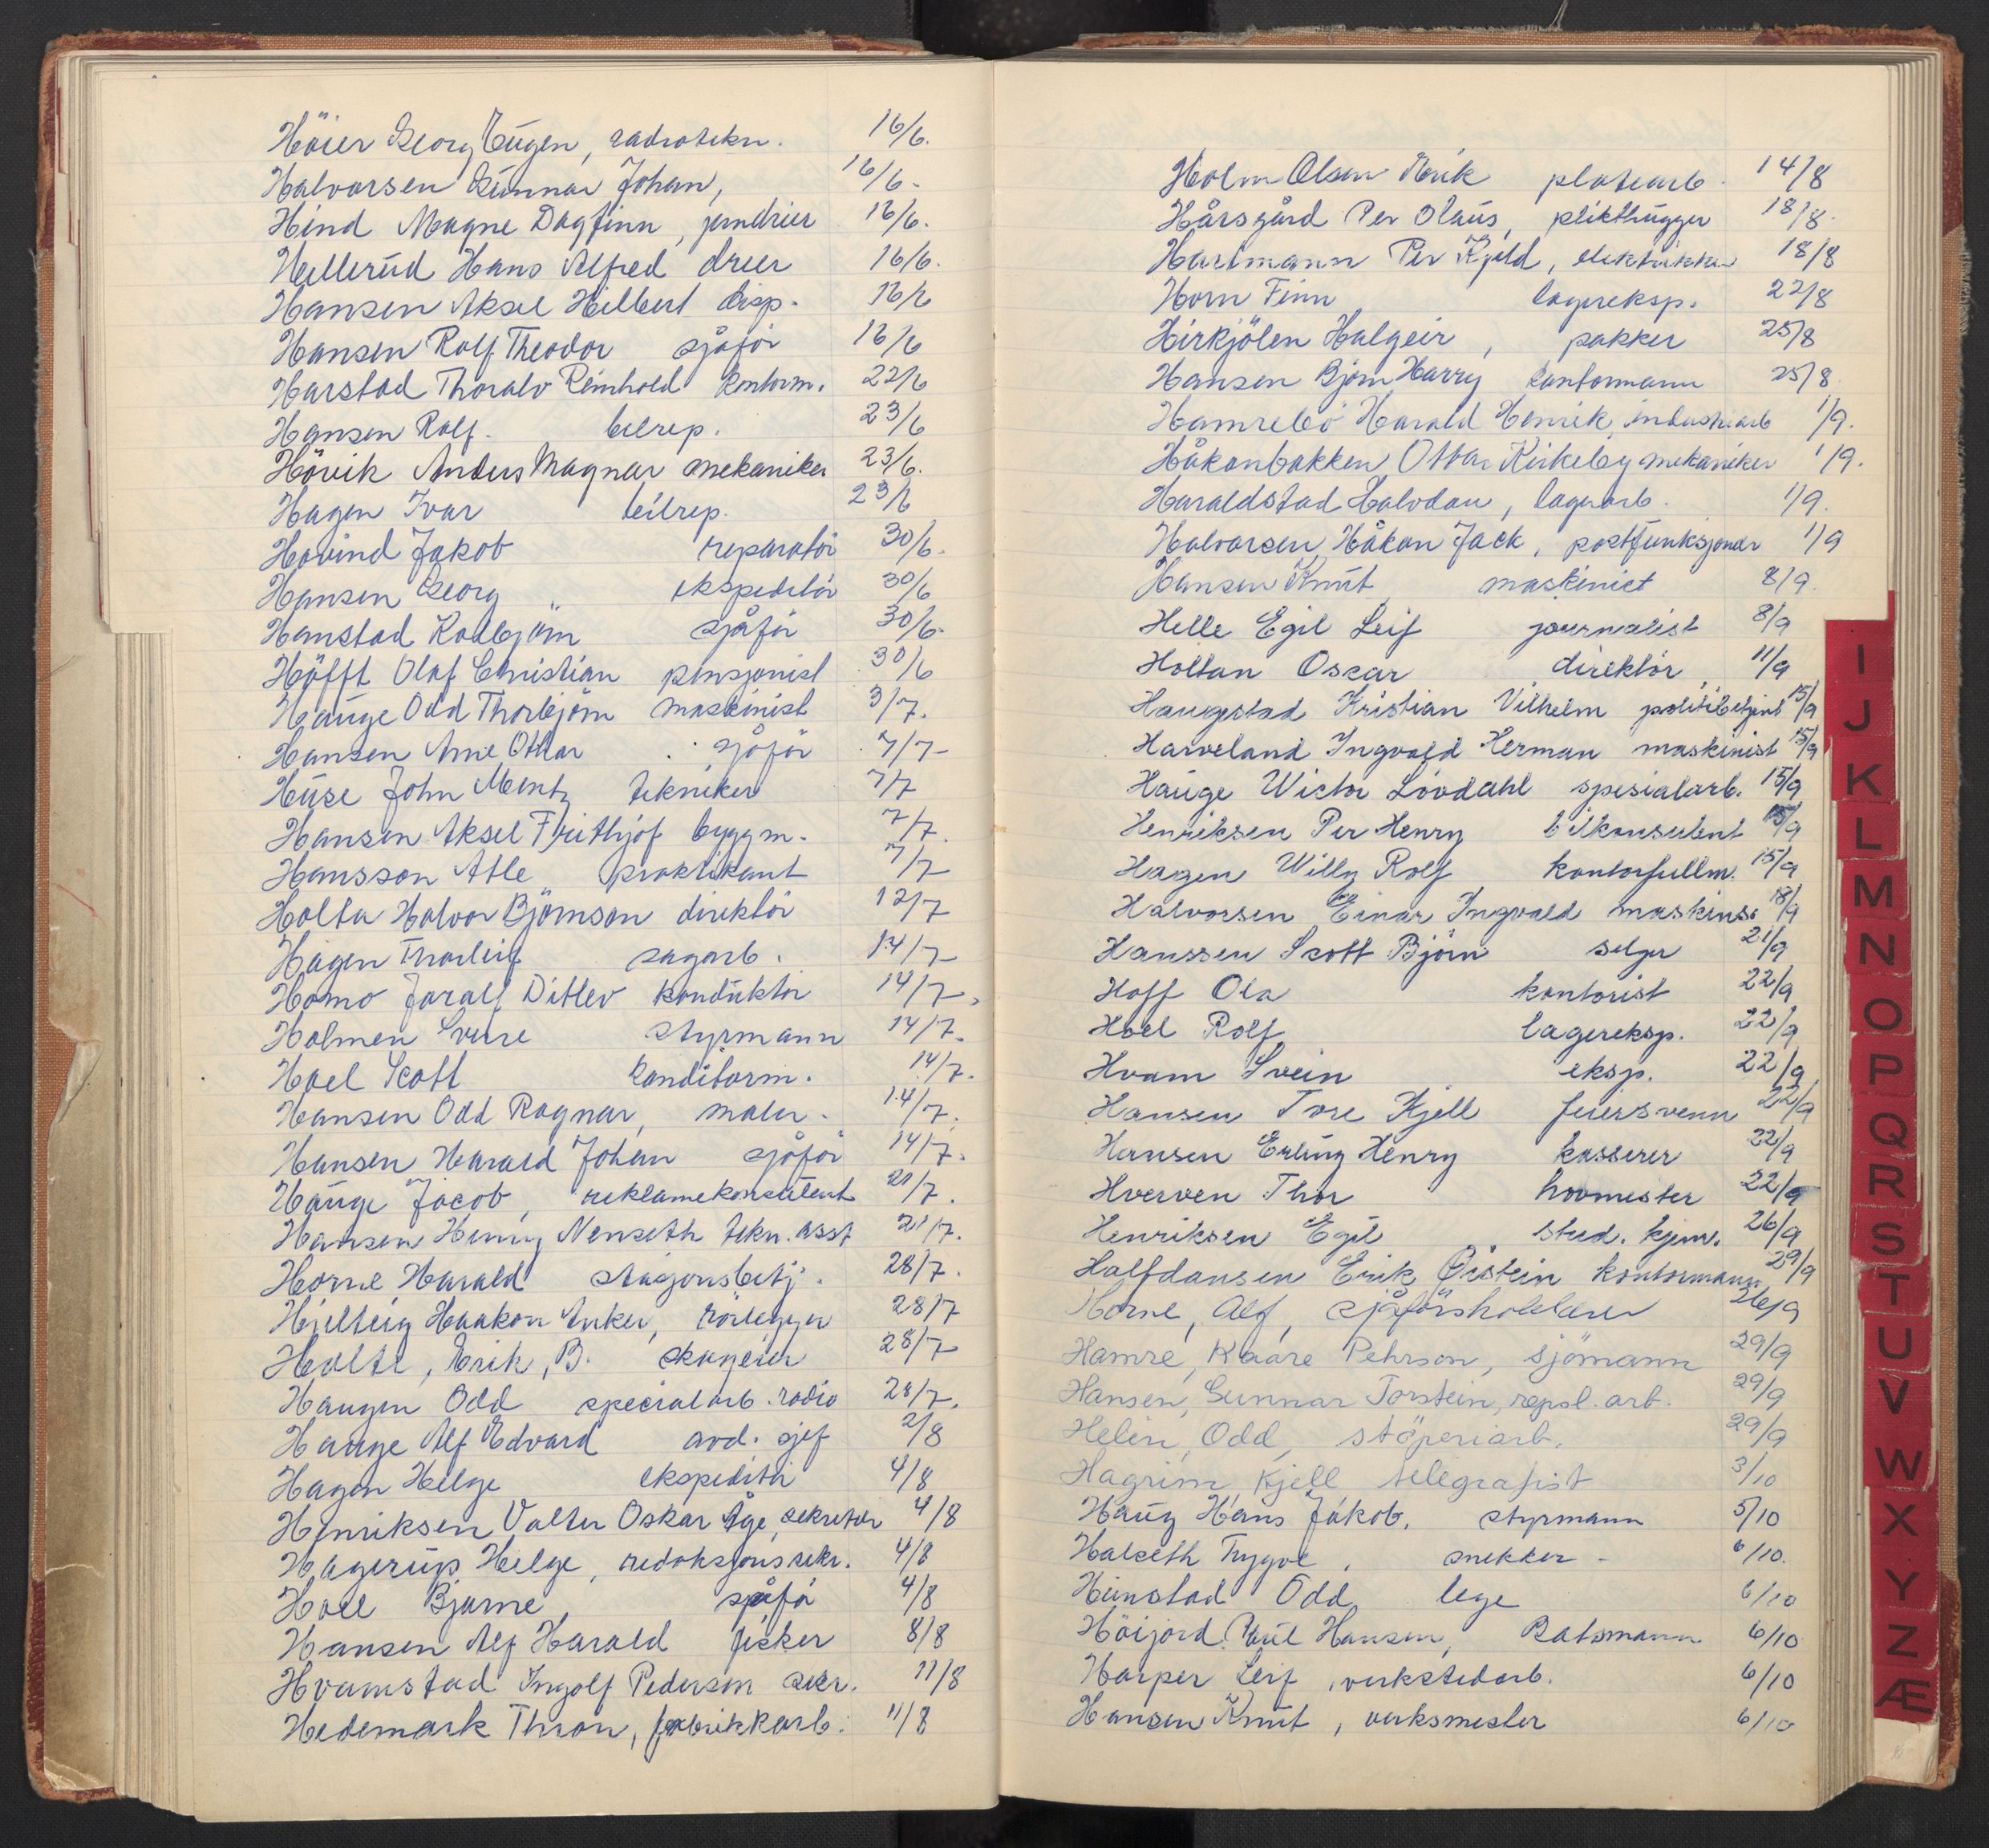 Höier Georg Eugen, radiotekn. 16/6.
Halvorsen Gunnar Johan, 16/6.
Hind Magne Dagfinn, jerndrier 16/6.
Hellerud Hans Alfred drier 16/6.
Hansen Aksel Hilbert disp. 16/6
Hansen Rolf Theodor sjåför 16/6
Harstad Thoralv Reinhold kontorm. 22/6
Hansen Rolf. bilrep. 23/6
Hövik Anders Magnar mekaniker 23/6.
Hagen Ivar bilrep. 23/6
Hovind Jakob reparatör 30/6.
Hansen Georg ekspeditör 30/6
Hanstad Kolbjörn sjåför 30/6.
Höfft Olaf Christian pensjonist 30/6
Hauge Odd Thorbjörn maskinist 3/7.
Hansen Arne Ottar sjåför 7/7
Huse John Mentz tekniker 7/7
Hansen Aksel Frithjof byggm. 7/7.
Hansson Atle praktikant 7/7
Holta Halvor Björnson direktör 12/7
Hagen Thorleif sagarb. 14/7
Homo Jaralf Ditlev konduktör 14/7.
Holmen Sverre styrmann 14/7.
Hoel Scott konditorm. 14/7.
Hansen Odd Ragnar, maler. 14/7.
Hansen Harald Johan sjåför 14/7.
Hauge Jacob, reklamekonsulent 21/7.
Hansen Henny Nenseth tekn. asst 21/7.
Horne Harald stasjonsbetj. 28/7.
Hjelteig Haakon Anker, rörlegger 28/7
Holte, Erik, B. skogeier 28/7
Haugen Odd specialarb. radio 28/7.
Hauge Alf Edvard avd. sjef 2/8
Hagen Helge ekspeditör 4/8
Henriksen Valter Oskar Åge, sekretær 4/8
Hagerup Helge, redaksjonssekr. 4/8
Hoel Bjarne sjåför 4/8
Hansen Alf Harald fisker 8/8
Hvamstad Ingolf Pedersen sekr. 11/8
Hedemark Thron, fabrikkarb. 11/8
Holm Olsen Erik platearb. 14/8
Hårsgård Per Olaus, plikthugger 18/8.
Hartmann Per Kjeld, elektriker 18/8
Horn Finn lagereksp. 22/8
Hirkjölen Halgeir, pakker 25/8
Hansen Bjørn Harry kontormann 25/8
Hamrebö Harald Henrik, industriarb 1/9.
Håkonbakken Ottar Kirkeby mekaniker 1/9.
Haraldstad Halvdan, lagerarb. 1/9.
Halvorsen, Håkon Jack, postfunksjonær 1/9
Hansen Knut maskinist 8/9.
Helle Egil Leif journalist 8/9
Holtan Oscar direktör 11/9
Haugstad Kristian Vilhelm politibetjent 15/9
Haaveland Ingvald Herman maskinist 15/9
Hauge Wictor Lövdahl spesialarb. 15/9
Henriksen Per Henry bilkonsulent 15/9
Hagen Willy Rolf kontorfullm. 15/9
Halvorsen Einar Ingvald maskins. 18/9
Hanssen Scott Björn selger 21/9
Hoff Ola kontorist 22/9
Hoel Rolf lagereksp. 22/9
Hvam Svein eksp. 22/9
Hansen Tore Kjell feiersvenn 22/9
Hansen Erling Henry kasserer 22/9
Hverven Thor hovmester 22/9
Henriksen Egil stud. kjem. 26/9
Halfdansen Erik Øistein kontormann 29/9
Horne, Alf, sjåförsholelærer 26/9
Hamre, Kaare Pehrson, sjömann 29/9
Hansen, Gunnar Torstein, repsl. arb. 29/9
Helén, Odd, stöperiarb. 29/9
Hagrim, Kjell telegrafist 3/10
Haug Hans Jakob, styrmann 5/10
Halseth Trygve, snekker 6/10.
Heimstad Odd lege 6/10
Höijord Paul Hansen, Batsmann 6/10
Harper Leif, verkstedarb. 6/10
Hansen Knut, verksmester 6/10
I
J
K
L
M
N
O
P
Q
R
S
T
U
V
W
X
Y
Z
Æ